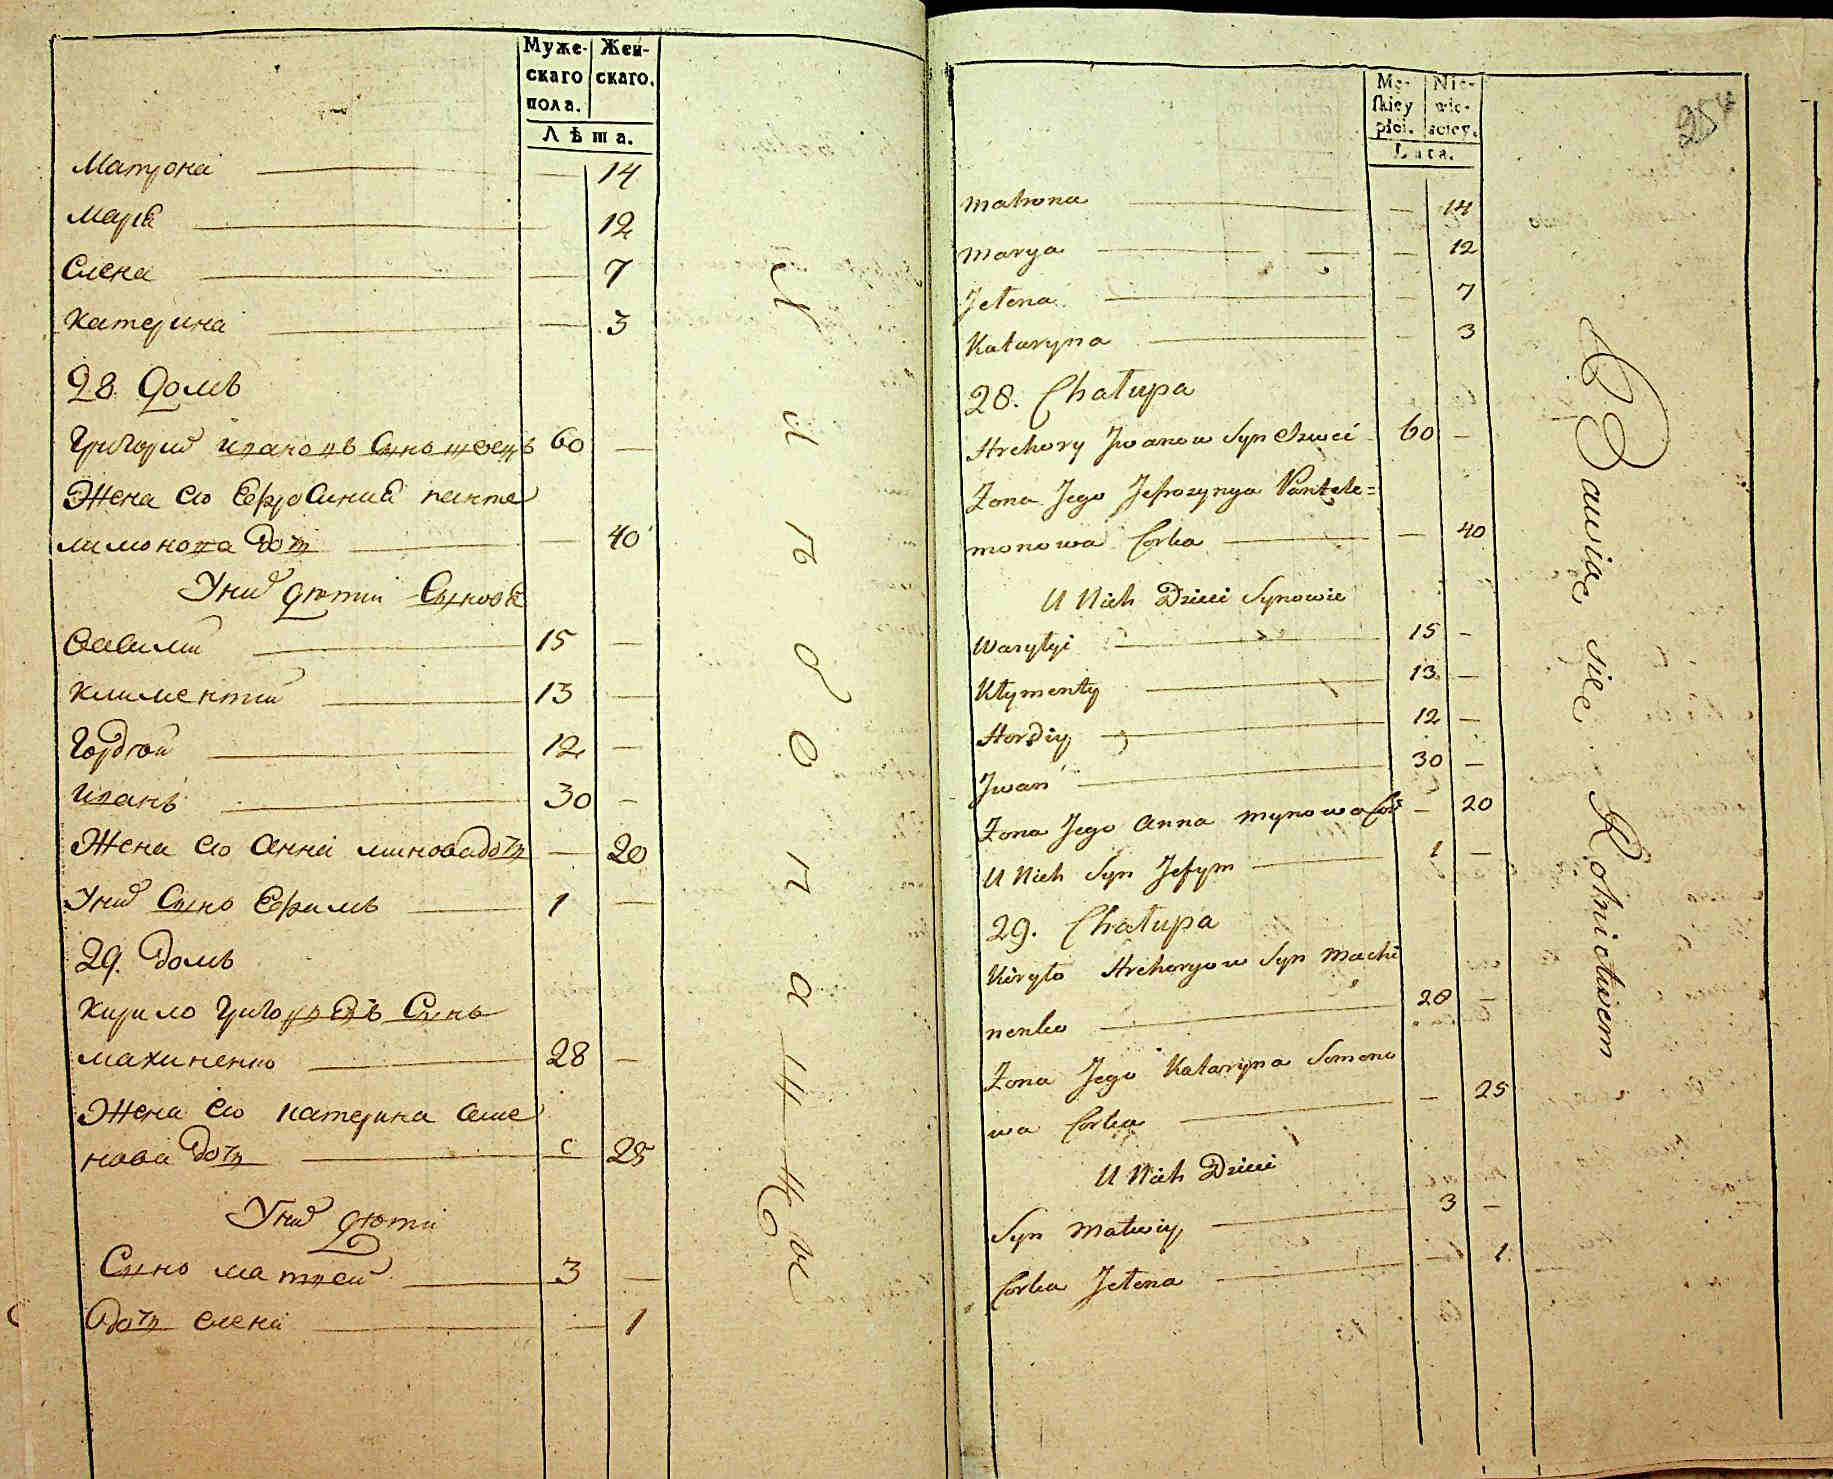 Муже-
скаго
пола.
Жен-
скаго.
Лѣта.
Матрона 14
Марія 12
Елена 7
Катерина 3
28 Домъ
Григорий Ивановъ Сынъ швецъ 60 —
Жена его Ефросиния панте
лимонова дочь — 40
У них дѣти Сыновя
Василий 15 —
Климентий 13 —
Гордѣй 12 —
Иванъ 30 —
Жена его Анна минова дочь — 20
У них Сынъ Ефимъ 1 —
29. Домъ
Кирило Григориевъ Сынъ
махиненко 28 —
Жена его катерина семе
нова дочь 25
У них дѣти
Сынъ матвей 3 —
Дочь елена — 1
Męs-
kiey
płci.
Nie-
wie-
sciey.
Lata.
254
Matrona — 14
Marya — 12
Jełena — 7
Kataryna — 3
28. Chałupa
Hrehory Jwanow Syn Szweć 60 —
Żona Jego Jefrozynya Pantele=
monowa Corka — 40
U Nich Dzieci Synowie
Wasylyi 15 —
Kłymenty 13 —
Hordiy 12 —
Jwan 30 —
Żona Jego Anna Mynowa Cor — 20
U Nich Syn Jefym 1 —
29. Chałupa
Kiryło Hrehoryow Syn Machi
nenko 28 —
Żona Jego Kataryna Semeno
wa Corka — 25
U Nich Dzieci
Syn Matwiy 3 —
Corka Jełena — 1
Bawiąc się Rolnictwem